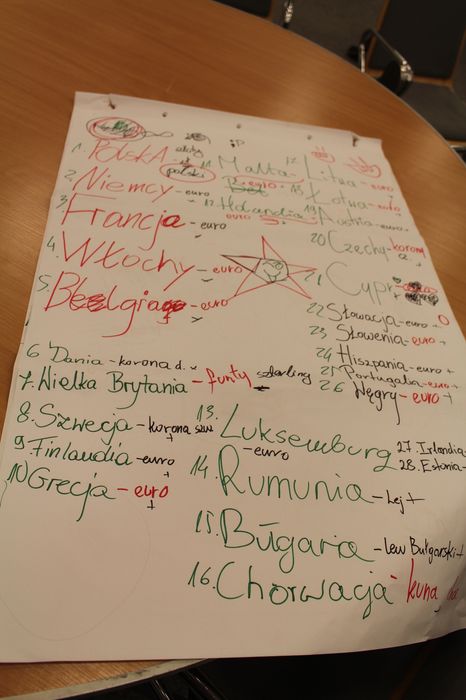 1. Polska - złoty polski
2. Niemcy - euro
3. Francja - euro
4. Włochy - euro
5. Belgia - euro
6. Dania - korona d.
7. Wielka Brytania - funty szterling
8. Szwecja - korona szw
9. Finlandia - euro +
10 Grecja - euro +
11 Malta -
euro
12. Holandia
euro
13. Luksemburg
- euro
14. Rumunia - Lej +
15. Bułgaria - lew Bułgarski +
16. Chorwacja - kuna
17. Litwa - euro
18. Łotwa - euro
19 Austria - euro
20 Czechy - korona
21 Cypr -
22 Słowacja - euro
23 Słowenia - euro +
24 Hiszpania - euro +
25 Portugalia - euro +
26 Węgry - euro +
27. Irlandia -
28. Estonia -